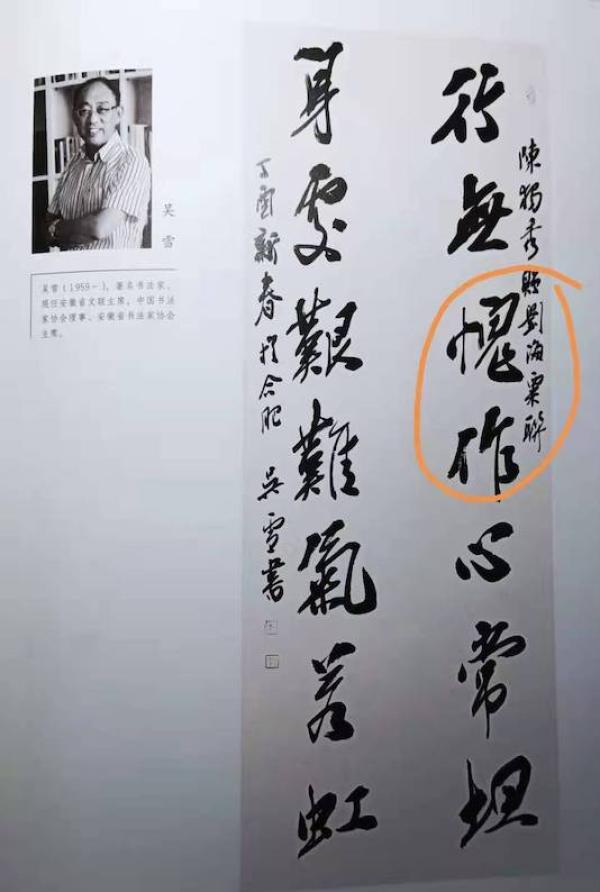 行無愧作心常坦
陳獨秀贈劉海粟聯
身處艱難氣若虹
丁酉新春於合肥 吳雪書
吴雪
吴雪(1959-),著名书法家,
现任安徽省文联主席,中国书法
家协会理事、安徽省书法家协会
主席。